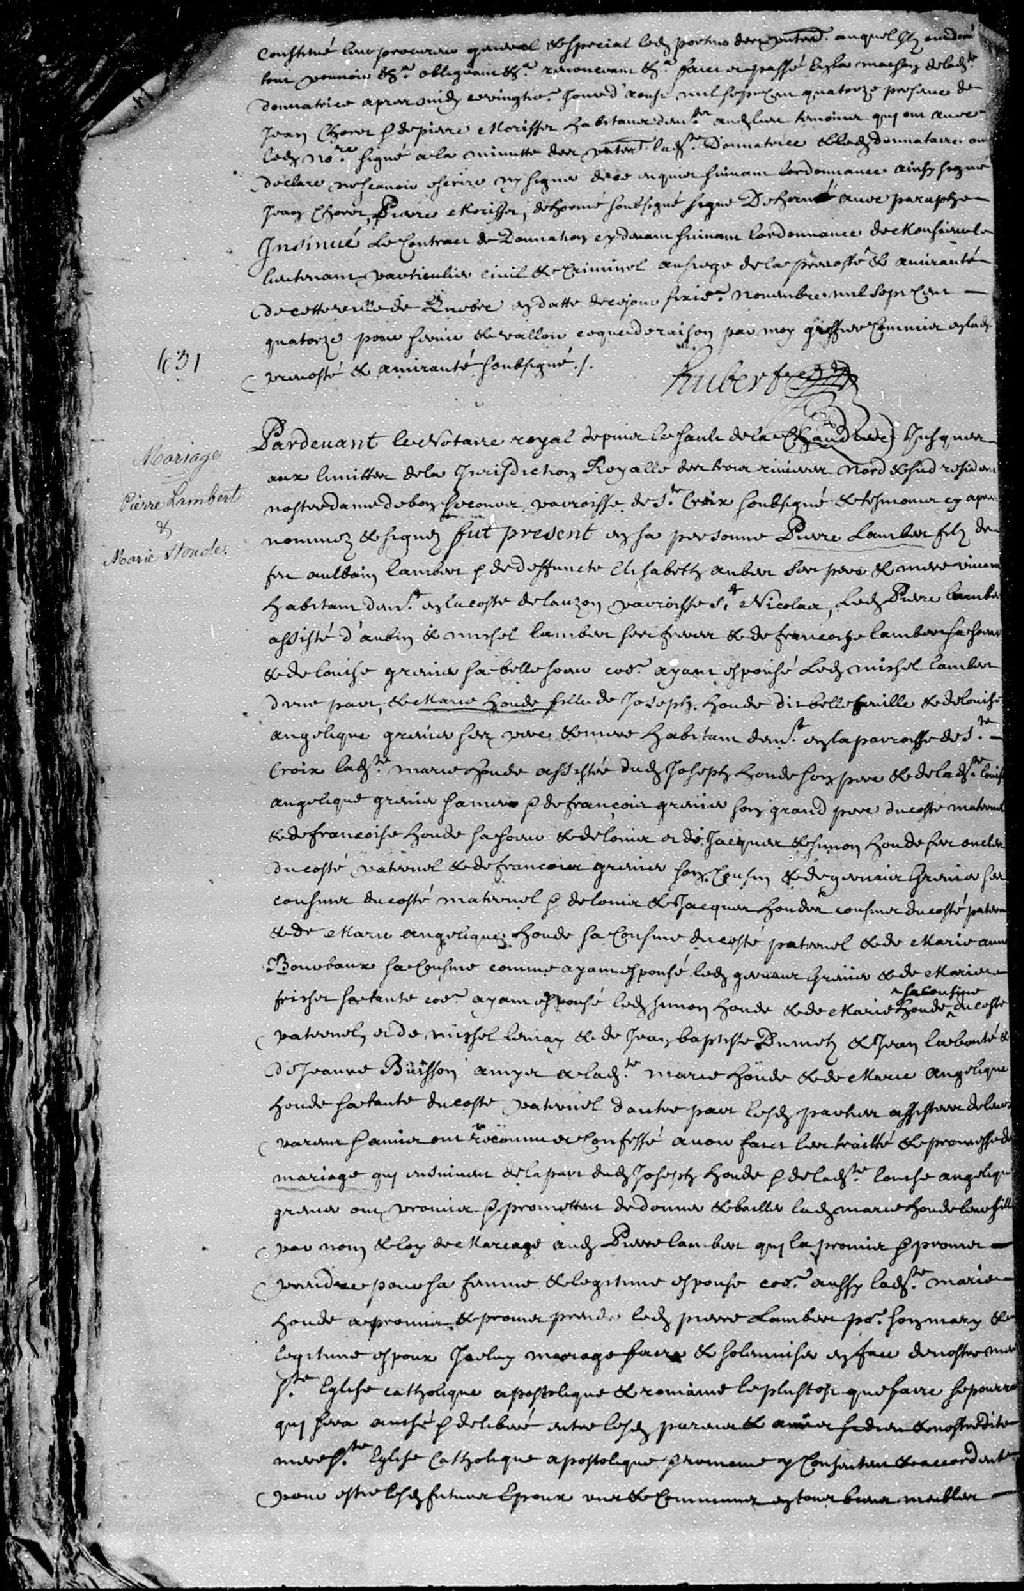 Constitué leur procureur general & special led porteur des pntes auquel Ilz ont donné
tout pouvoir &a obligeant &a renonceant &a faict et passé en la maison de lade
donnatrice apres midy ce vingtie Jour d'aoust mil sept Cent quatorze presence de
Jean Choret & de pierre Morisset habitans demt audt lieu tesmoins qui ont avec
led nore signé a la minutte des pntes lade Donnatrice & led donnataire ont
declaré ne scavoir escrire ny signer de ce enquis suivant lordonnance ainsy signé
Jean Choret, Pierre Morisset, dehorné soubsigné signé Dehorné avec paraphe
Insinué Le Contract de Donnation cy devant suivant lordonnance de Monsieur le
lieutenant particulier civil & Criminel au siege de la prevosté & amirauté
de cette ville de Quebec en datte de ce jour sixie novembre mil sept Cent
quatorze pour servir & valloir ce que de raison par moy greffier Commis en lad
prevosté & amirauté soubsigné /.
Rubert
631
Pardevant le Notaire royal depuis le sault de la Chaudiere Jusques
aux limittes de la Jurisdiction Royalle des trois rivieres Nord & sud resident
Mariage
Pierre Lambert
&
Marie Houde
nostre dame de bon secours paroisse de Ste Croix soubsigné & tesmoins cy apres
nommez & signez fut present en sa personne Pierre Lambert filz de
feu aulbin lambert & de deffuncte Elisabeth aubert ses pere & mere vivant
habitant demt en la coste de lauzon parroisse St Nicolas, Led Pierre lambert
assisté d'aubin & michel lambert ses freres & de francoise lambert sa soeur
& de louise grenier sa belle soeur coe ayant espousé Led michel lambert
d'une part, & Marie houde fille de Joseph houde dit bellefeuille & de louise
angelique grenier ses pere & mere habitant demt en la parroisse de Ste
Croix lade marie houde assistée dud Joseph houde son pere & de lade louise
angelique grenier sa mere & de francois grenier son grand pere du costé maternel
& de francoise houde sa soeur & de louis et de Jacques & simon houde ses oncles
du costé paternel & de francois grenier son Cousin & de gervais grenier ses
cousins du costé maternel & de louis & Jacques houde cousins du costé paternel
& de Marie angelique houde sa Cousine du costé paternel & de Marie anne
sa Cousine comme ayant espousé led gervais grenier & de Marie
frichet sa tante coe ayant espousé led simon houde & de Marie houde sa cousine du costé
paternel et de michel lemay & de Jean baptiste & Jean &
de Jeanne Buisson amys de lade marie houde & de Marie angelique
houde sa tante du costé paternel d'autre part lesd parties assistées de leurs
parens & amis ont recónnu et Confessé avoir faict les traitté & promesse de
mariage qui ensuivent de la part dud Joseph houde & de lade louise angelique
grenier ont promis & promettent de donner & bailler lad marie houde leur fille
par nom & loy de Mariage aud Pierre lambert qui la promis & promet
prendre pour sa femme & legitime espouse coe aussy lade marie
houde a promis & promet prendre led pierre Lambert po son mary &
legitime espoux Iceluy mariage faire & solemniser en face de nostre mere
Ste Eglise catholique apostolique & romaine le plustost que faire se pourra
qu'il sera advisé & deliberé entre lesd parties & amis si dieu & nostre dite
mere Ste Eglise Catholique apostolique & romaine y Consentent & accordent
pour estre lesd futurs Epoux uns & Communs en tous biens meubles